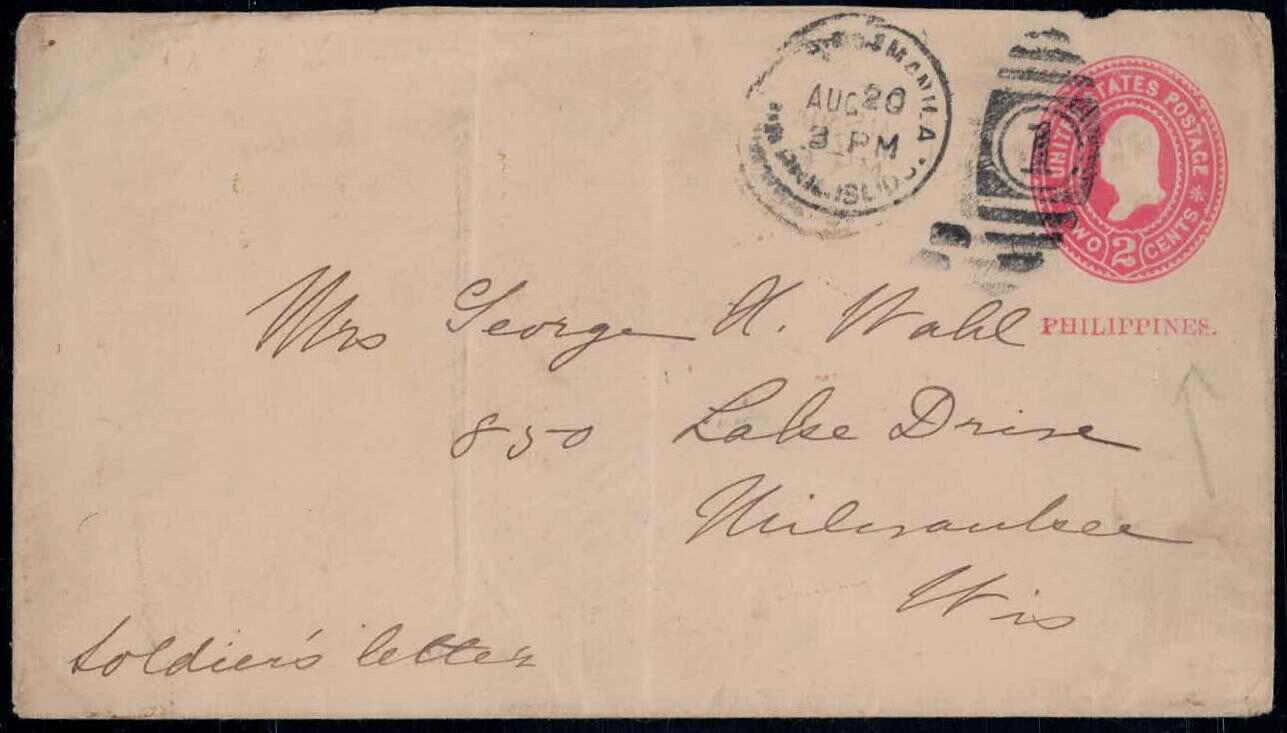 MANILA
AUG 20
3 PM
PHIL. ISLDS.
1
UNITED STATES POSTAGE
TWO 2 CENTS
PHILIPPINES.
Mrs George H. Wahl
850 Lake Drive
Milwaukee
Wis
Soldier's letter